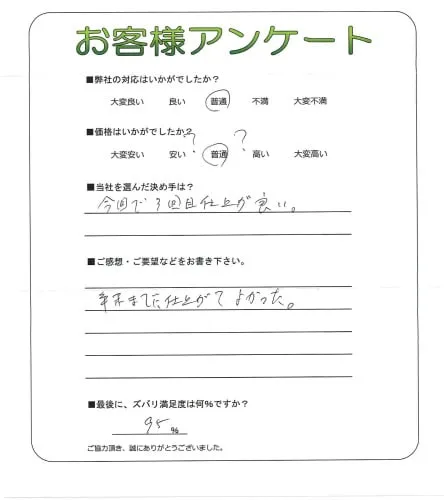 お客様アンケート
■弊社の対応はいかがでしたか?
大変良い 良い 普通 不満 大変不満
■価格はいかがでしたか?
? ?
大変安い 安い 普通 高い 大変高い
■当社を選んだ決め手は?
今回で3回目仕上が良い。
■ご感想・ご要望などをお書き下さい。
年末までに仕上がてよかった。
■最後に、ズバリ満足度は何%ですか?
95 %
ご協力頂き、誠にありがとうございました。